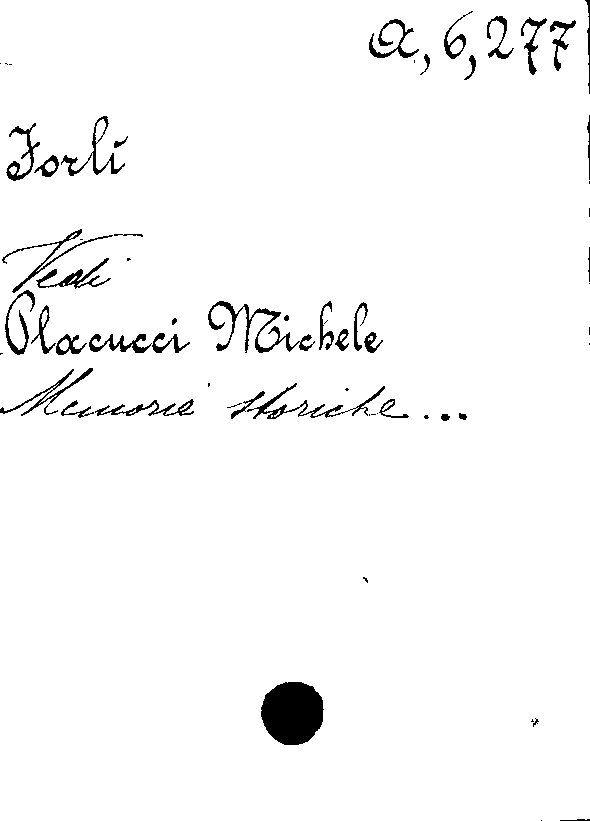 A, 6, 277
Forlì
Vedi
Placucci Michele
Memorie storiche ...